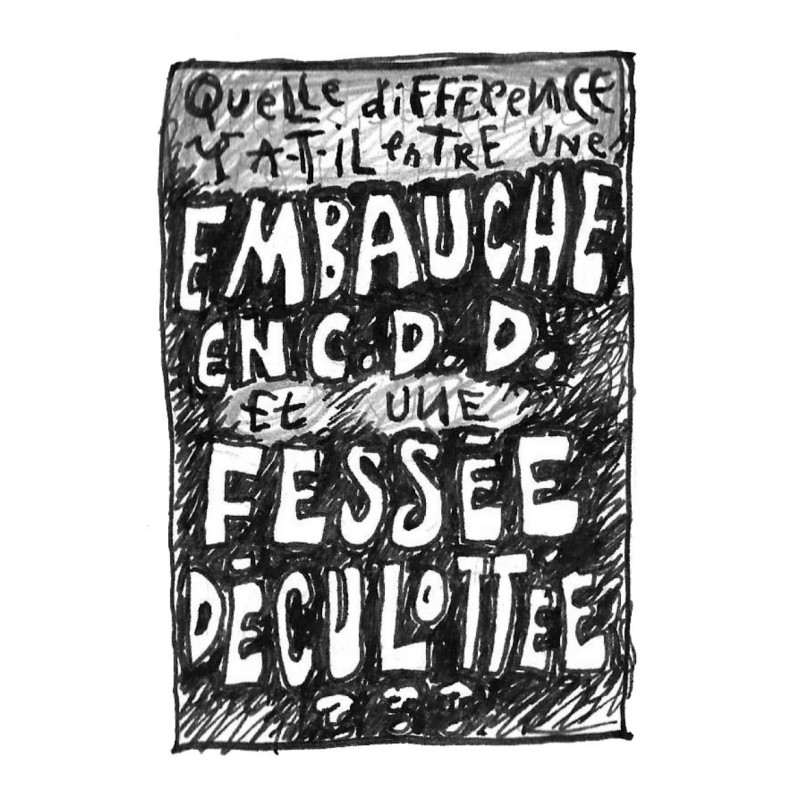 Quelle diFFÉRence
Y A-T-iL enTRE UNe
EMBAUCHE
EN C.D.D.
Et UNE
FESSÉE
DÉCULOTTÉE
???